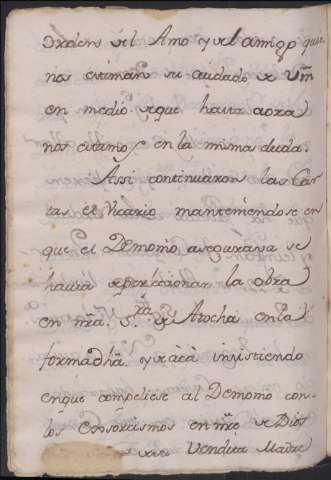 Ordens del Amo y del amigo que
nos estiman su cuidado de Vm
en medio de que hasta aora
nos estamos en la misma duda.
Assi continuaron las Car-
tas el Vicario manteniendose en
que el Demonio asegurava se
havia de perfeccionar la obra
en nra. S.ra de Atocha en la
forma dha y para insistiendo
en que compeliese al Demonio con
los Exsorcismos en nre de Dios
Vendita Madre